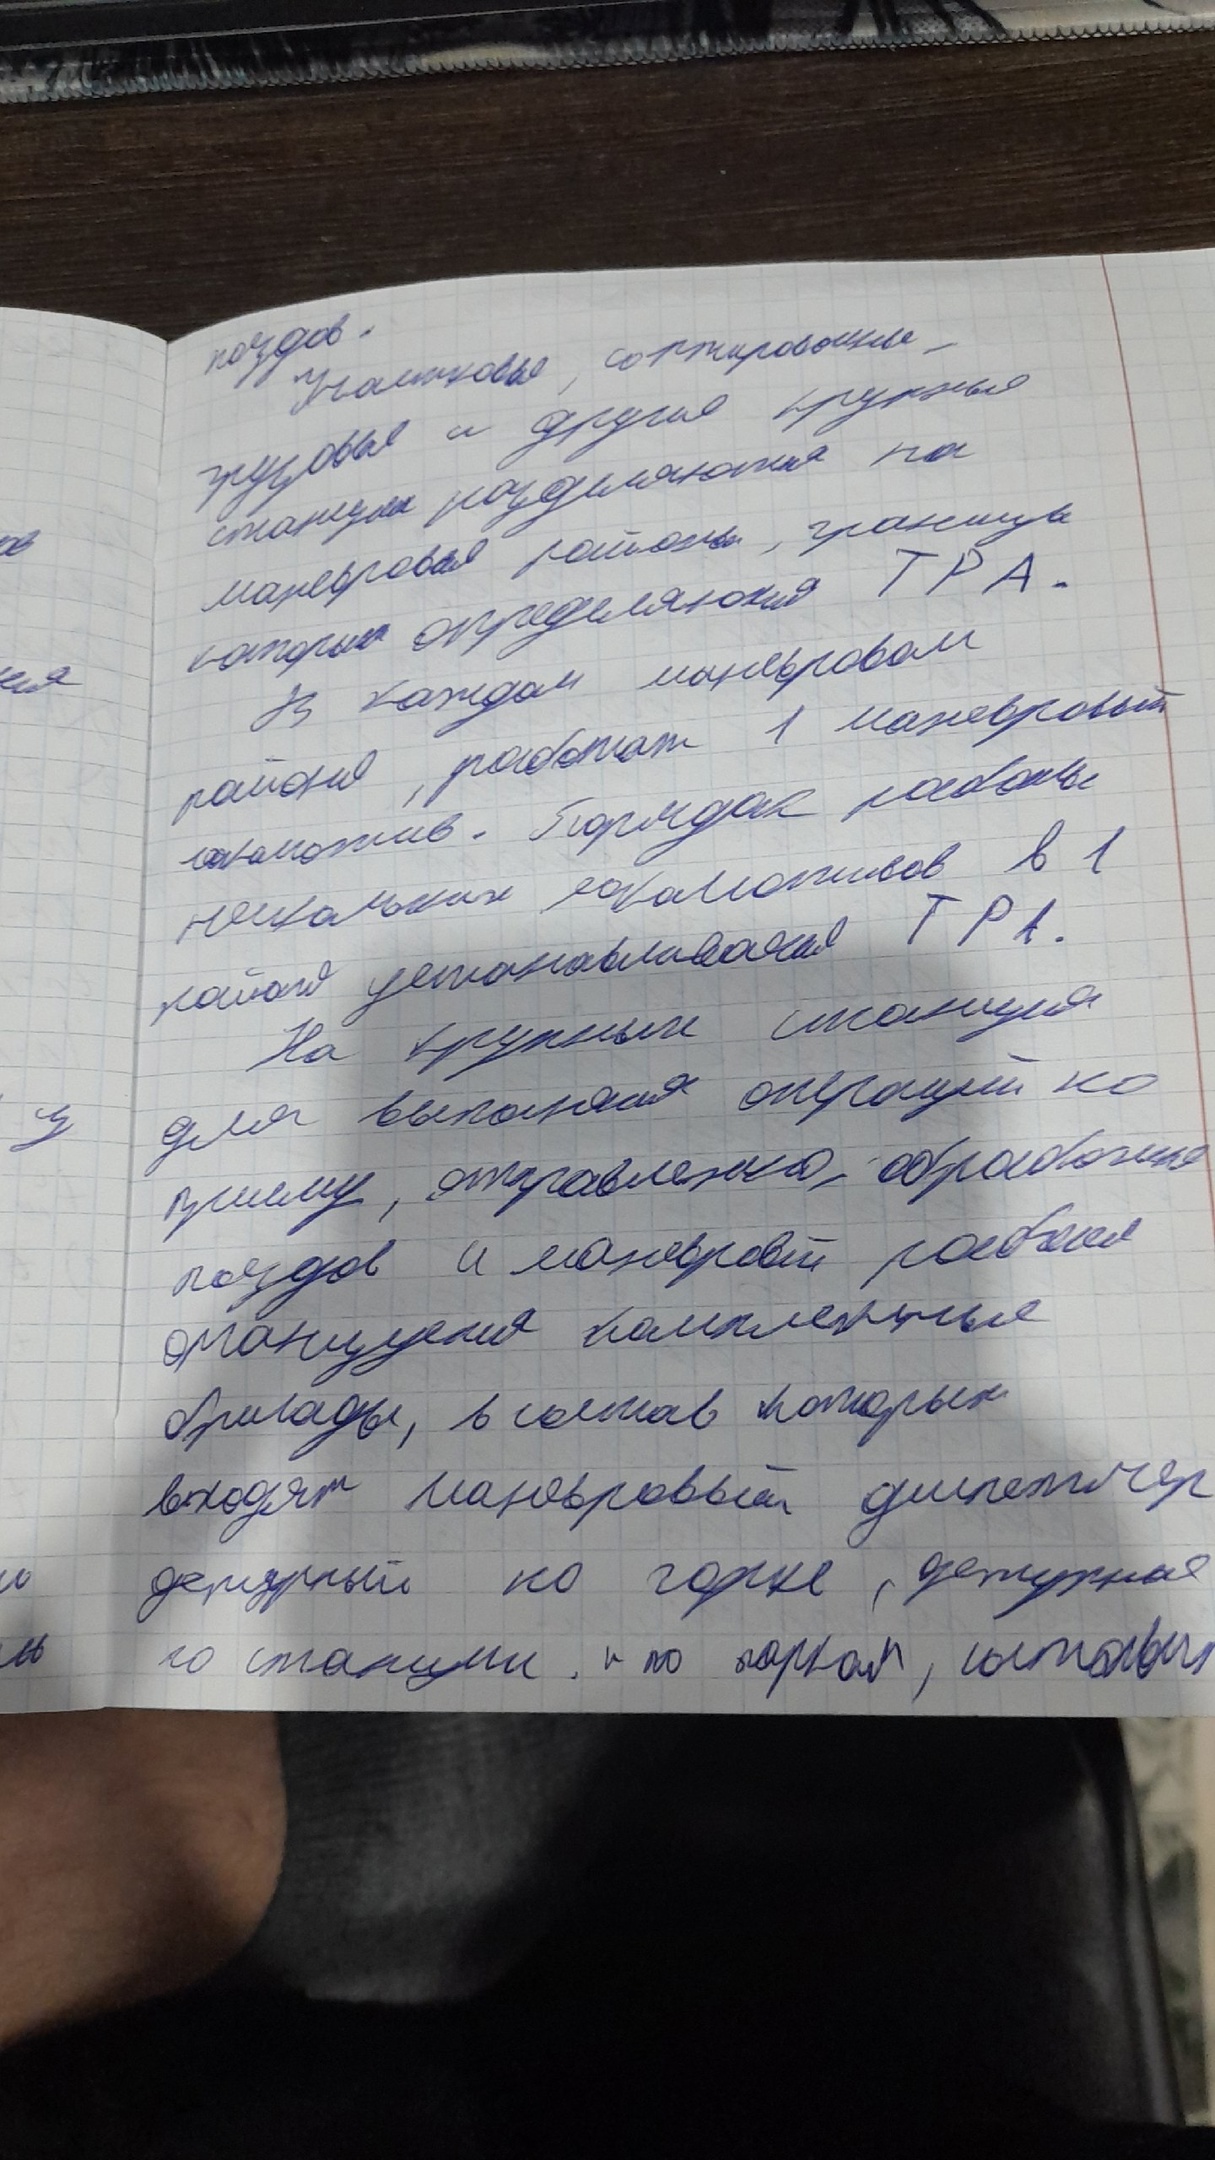 поездов.
Участковые, сортировочные,
грузовые и другие крупные
станции разделяются на
маневровые районы, границы
которых определяются ТРА.
В каждом маневровом
районе, работает 1 маневровый
локомотив. Порядок работы
нескольких локомотивов в 1
районе устанавливается ТРА.
На крупных станциях
для выполнения операций по
приему, отправлению, обработке
поездов и маневровой работы
организуются комплексные
бригады, в состав которых
входят маневровый диспетчер
дежурный по горке, дежурные
по станции. и по паркам, составит